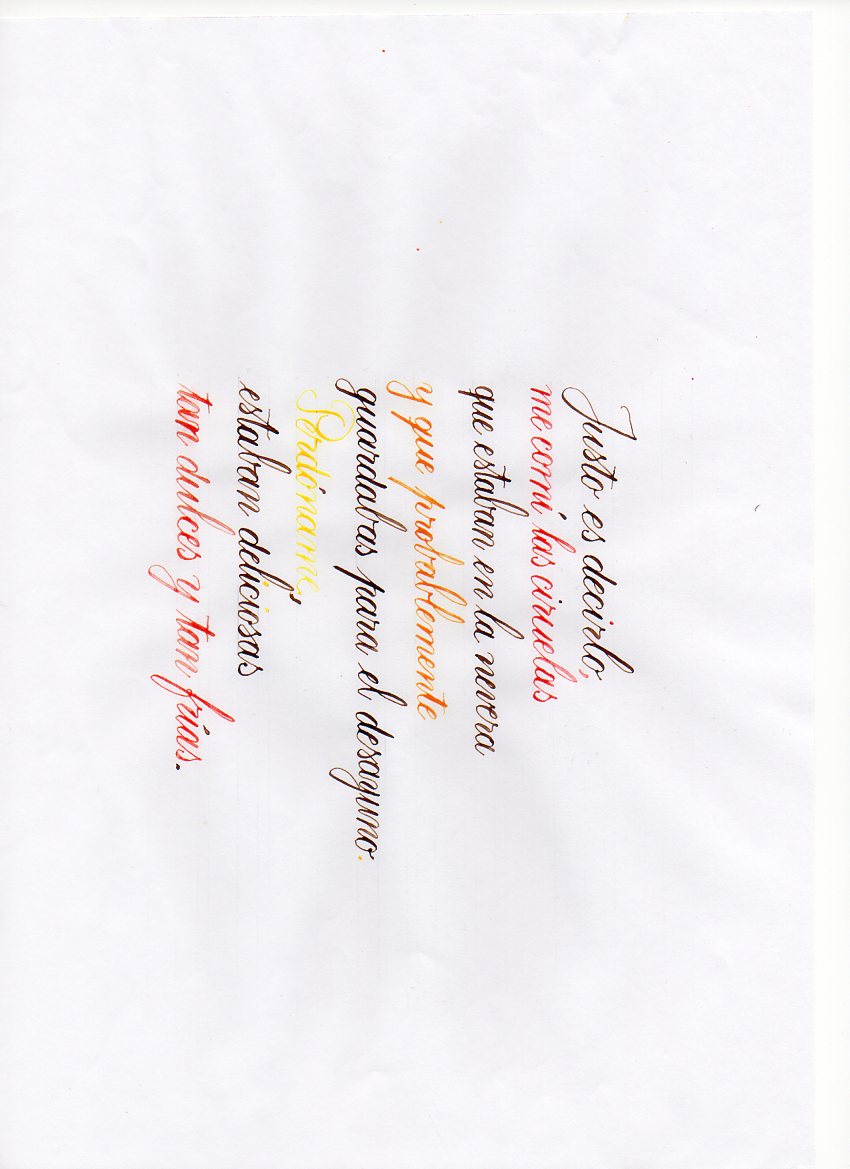 Justo es decirlo,
me comí las ciruelas
que estaban en la nevera
y que probablemente
guardabas para el desayuno.
Perdóname,
estaban deliciosas
tan dulces y tan frías.